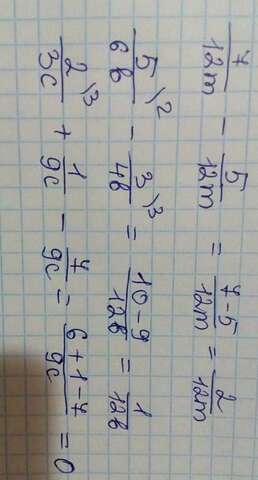 7/12m - 5/12m = 7-5/12m = 2/12m
5\2/6b - 3\3/4b = 10-9/12b = 1/12b
2\3/3c + 1/9c - 7/9c = 6+1-7/9c = 0